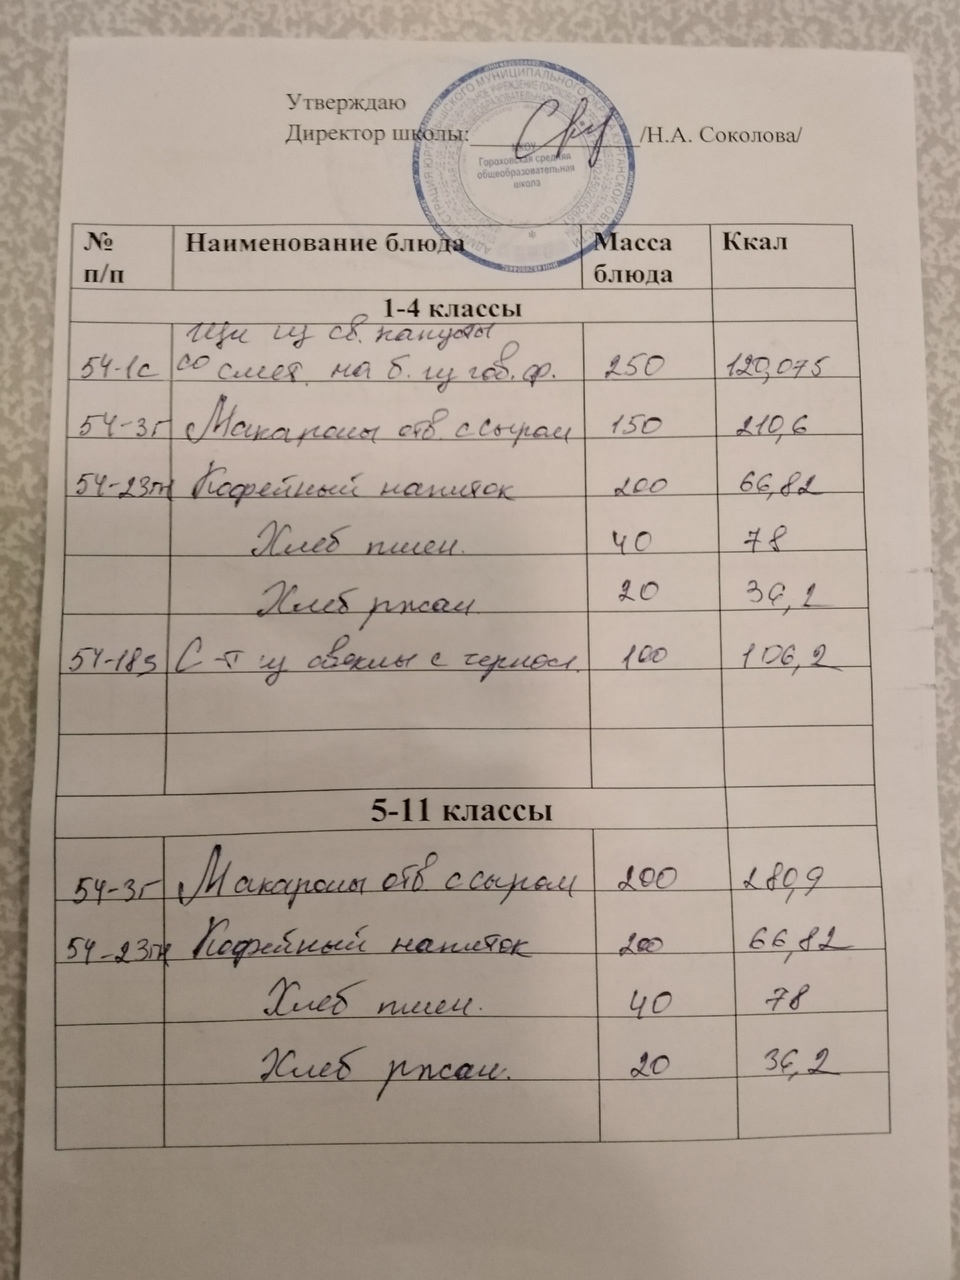 Утверждаю
Директор школы: /Н.А. Соколова/
Гороховская средняя
общеобразовательная
школа
№ п/п Наименование блюда Масса блюда Ккал
1-4 классы
Щи из св. капусты
54-1с со смет. на б. из гов. ф. 250 120,075
54-3г Макароны отв. с сыром 150 210,6
54-23гн Кофейный напиток 200 66,82
Хлеб пшен. 40 78
Хлеб ржан. 20 36,2
54-18з С-т из свеклы с чернос. 100 106,2
5-11 классы
54-3г Макароны отв. с сыром 200 280,9
54-23гн Кофейный напиток 200 66,82
Хлеб пшен. 40 78
Хлеб ржан. 20 36,2